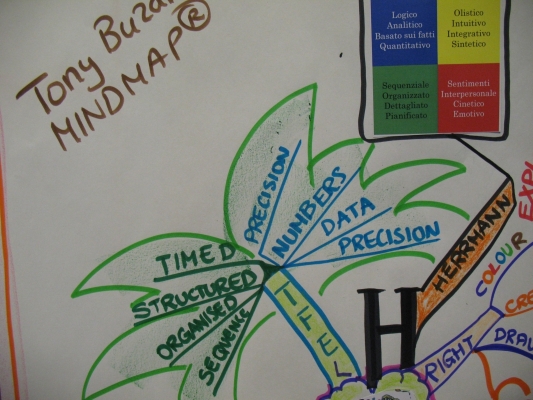 Tony Buzan
MINDMAP®
Logico
Analitico
Basato sui fatti
Quantitativo
Olistico
Intuitivo
Integrativo
Sintetico
Sequenziale
Organizzato
Dettagliato
Pianificato
Sentimenti
Interpersonale
Cinetico
Emotivo
PRECISION
NUMBERS
DATA
PRECISION
TIMED
STRUCTURED
ORGANISED
SEQUENCE
LEFT
H
HERRMANN
EXPL
COLOUR
CRE
RIGHT
DRAW